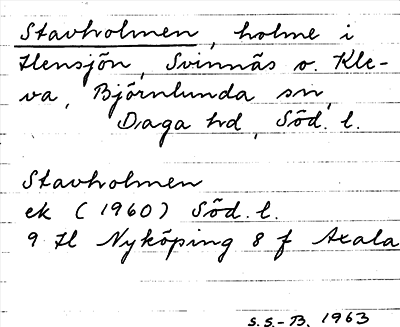 Stavholmen, holme i
Hensjön, Svinnäs o. Kle-
va, Björnlunda sn,
Daga hd, Söd. l.
Stavholmen
ek (1960) Söd. l.
9 H Nyköping 8 f Axala
S.S.-B. 1963